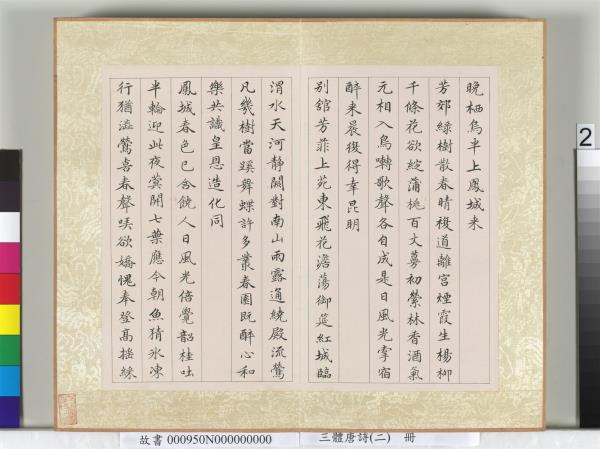 晚栖烏半上鳳城来
芳郊綠樹散春晴複道離宮煙霞生楊柳
千條花欲綻蒲桃百丈蔓初縈林香酒氣
元相入鳥囀歌聲各自成是日風光寧宿
醉来晨後得幸昆明
别舘芳菲上苑東飛花澹蕩御筵紅城臨
渭水天河靜闕對南山雨露通繞殿流鶯
凡幾樹當蹊舞蝶許多叢春園既醉心和
樂共識皇恩造化同
鳳城春色已含饒人日風光倍覺韶桂吐
半輪迎此夜蓂開七葉應今朝魚猜氷凍
行猶澁鶯喜春聲欲嬌愧奉登高摇綵
2
故書 000950N000000000 三體唐詩(二) 冊